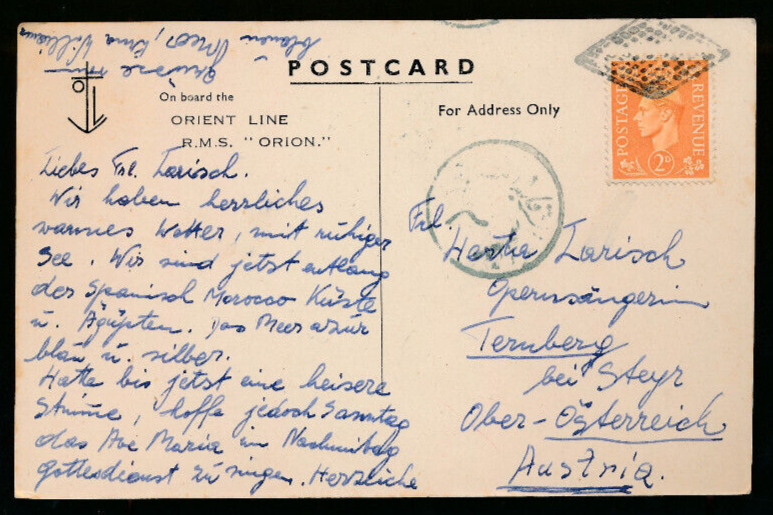 POSTCARD
On board the
ORIENT LINE
R.M.S. "ORION."
For Address Only
POSTAGE REVENUE
2D
Liebes Frl. Larisch.
Wir haben herrliches
warmes Wetter, mit ruhiger
See. Wir sind jetzt entlang
der Spanisch Morocco Küste
u. Ägypten. Das Meer azur
blau u. silber.
Hatte bis jetzt eine heisere
Stimme, hoffe jedoch Sonntag
das Ave Maria im Nachmittag
gottesdienst zu singen. Herzliche
Grüsse von
blauen Meer, Erna
Frl.
Hertha Larisch
Opernsängerin
Ternberg
bei Steyr
Ober-Österreich
Austria.